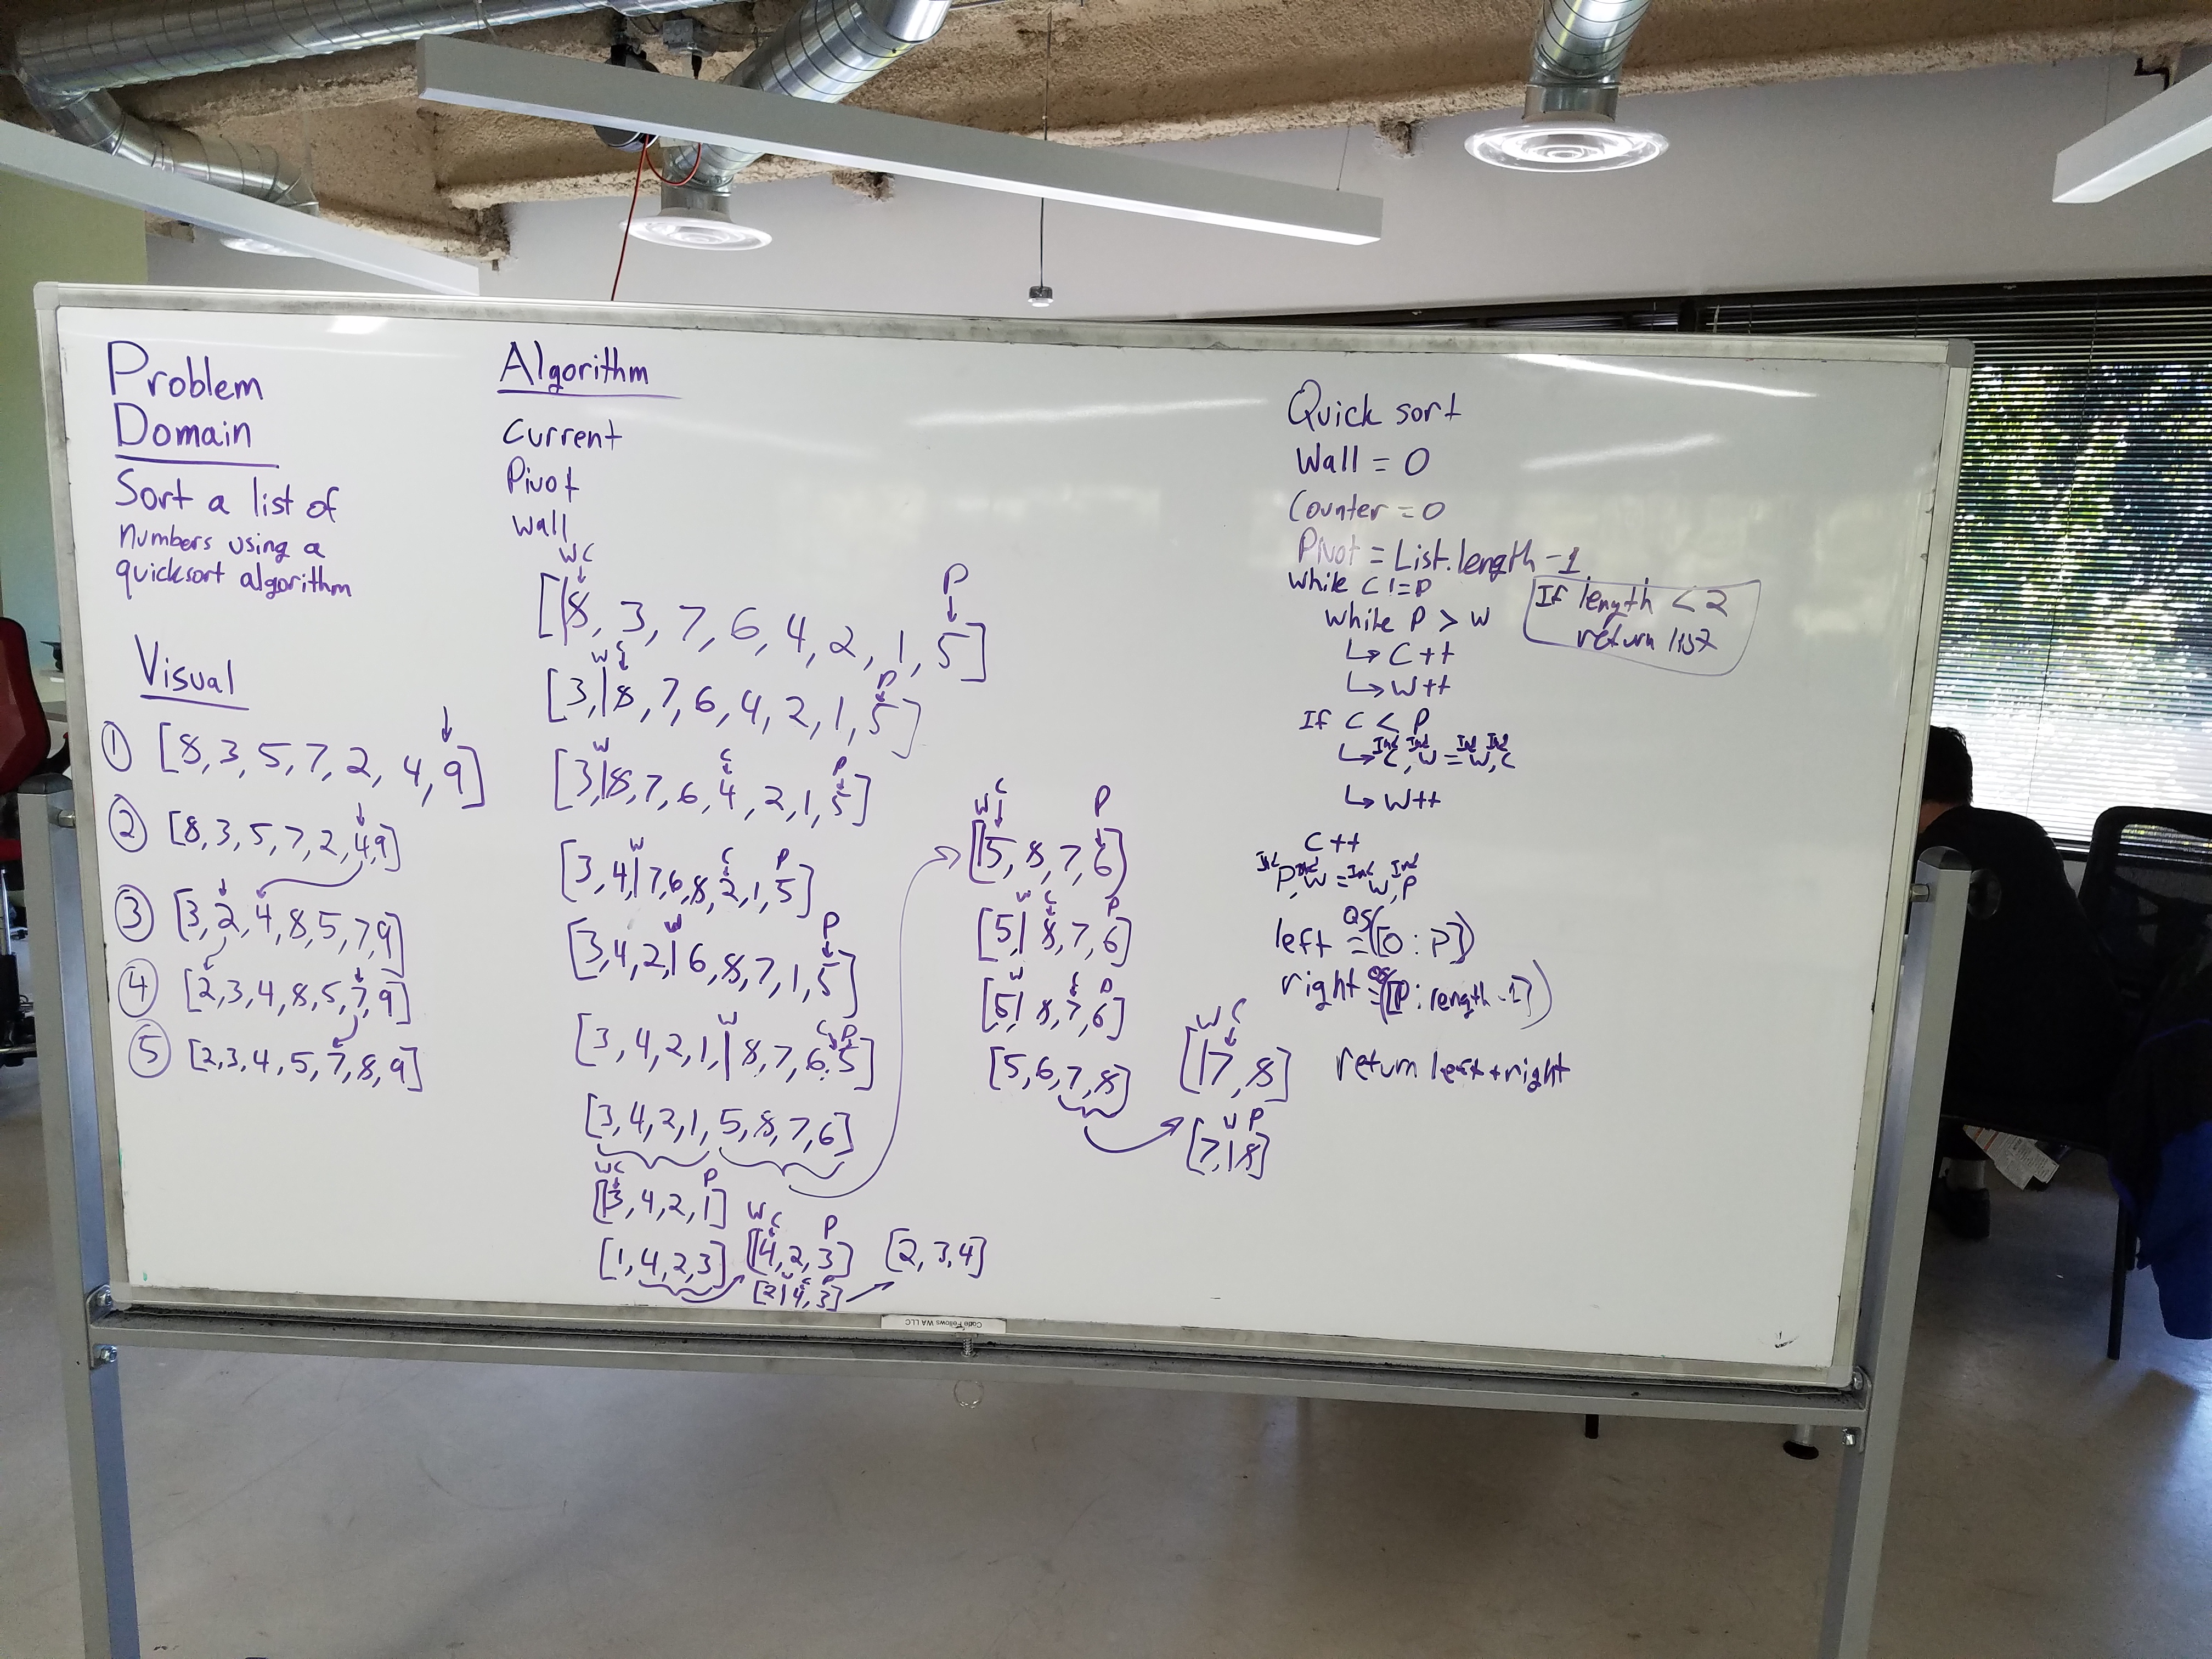 Problem
Domain
Sort a list of
numbers using a
quicksort algorithm
Visual
① [8, 3, 5, 7, 2, 4, 9]
② [8, 3, 5, 7, 2, 4, 9]
③ [3, 2, 4, 8, 5, 7, 9]
④ [2, 3, 4, 8, 5, 7, 9]
⑤ [2, 3, 4, 5, 7, 8, 9]
Algorithm
Current
Pivot
Wall
W C P
[|8, 3, 7, 6, 4, 2, 1, 5]
W C P
[3,|8, 7, 6, 4, 2, 1, 5]
W C P
[3,|8, 7, 6, 4, 2, 1, 5]
W C P
[3, 4,|7, 6, 8, 2, 1, 5]
W P
[3, 4, 2,|6, 8, 7, 1, 5]
W C P
[3, 4, 2, 1,|8, 7, 6, 5]
[3, 4, 2, 1, 5, 8, 7, 6]
W C P
[|3, 4, 2, 1]
[1, 4, 2, 3]
W C P
[|4, 2, 3]
W C P
[2|4, 3]
[2, 3, 4]
W C P
[|5, 8, 7, 6]
W C P
[5,|8, 7, 6]
W C P
[5,|8, 7, 6]
[5, 6, 7, 8]
W C
[|7, 8]
W P
[7,|8]
Quick sort
Wall = 0
Counter = 0
Pivot = List.length -1
While C != P
While P > W
↳ C ++
↳ W ++
If C < P
Ind Ind Ind Ind
↳ C, W = W, C
↳ W++
C ++
Ind Ind Ind Ind
P, W = W, P
left = QS([0 : P])
right = QS([P : length -1])
return left + right
If length < 2
return list
Code Fellows WA LLC